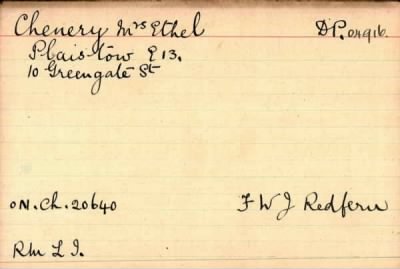 Chenery Mrs Ethel D P. 04916.
Plaistow E 13.
10 Greengate St
ON. Ch. 20640 F W J Redfern
Rm L I.